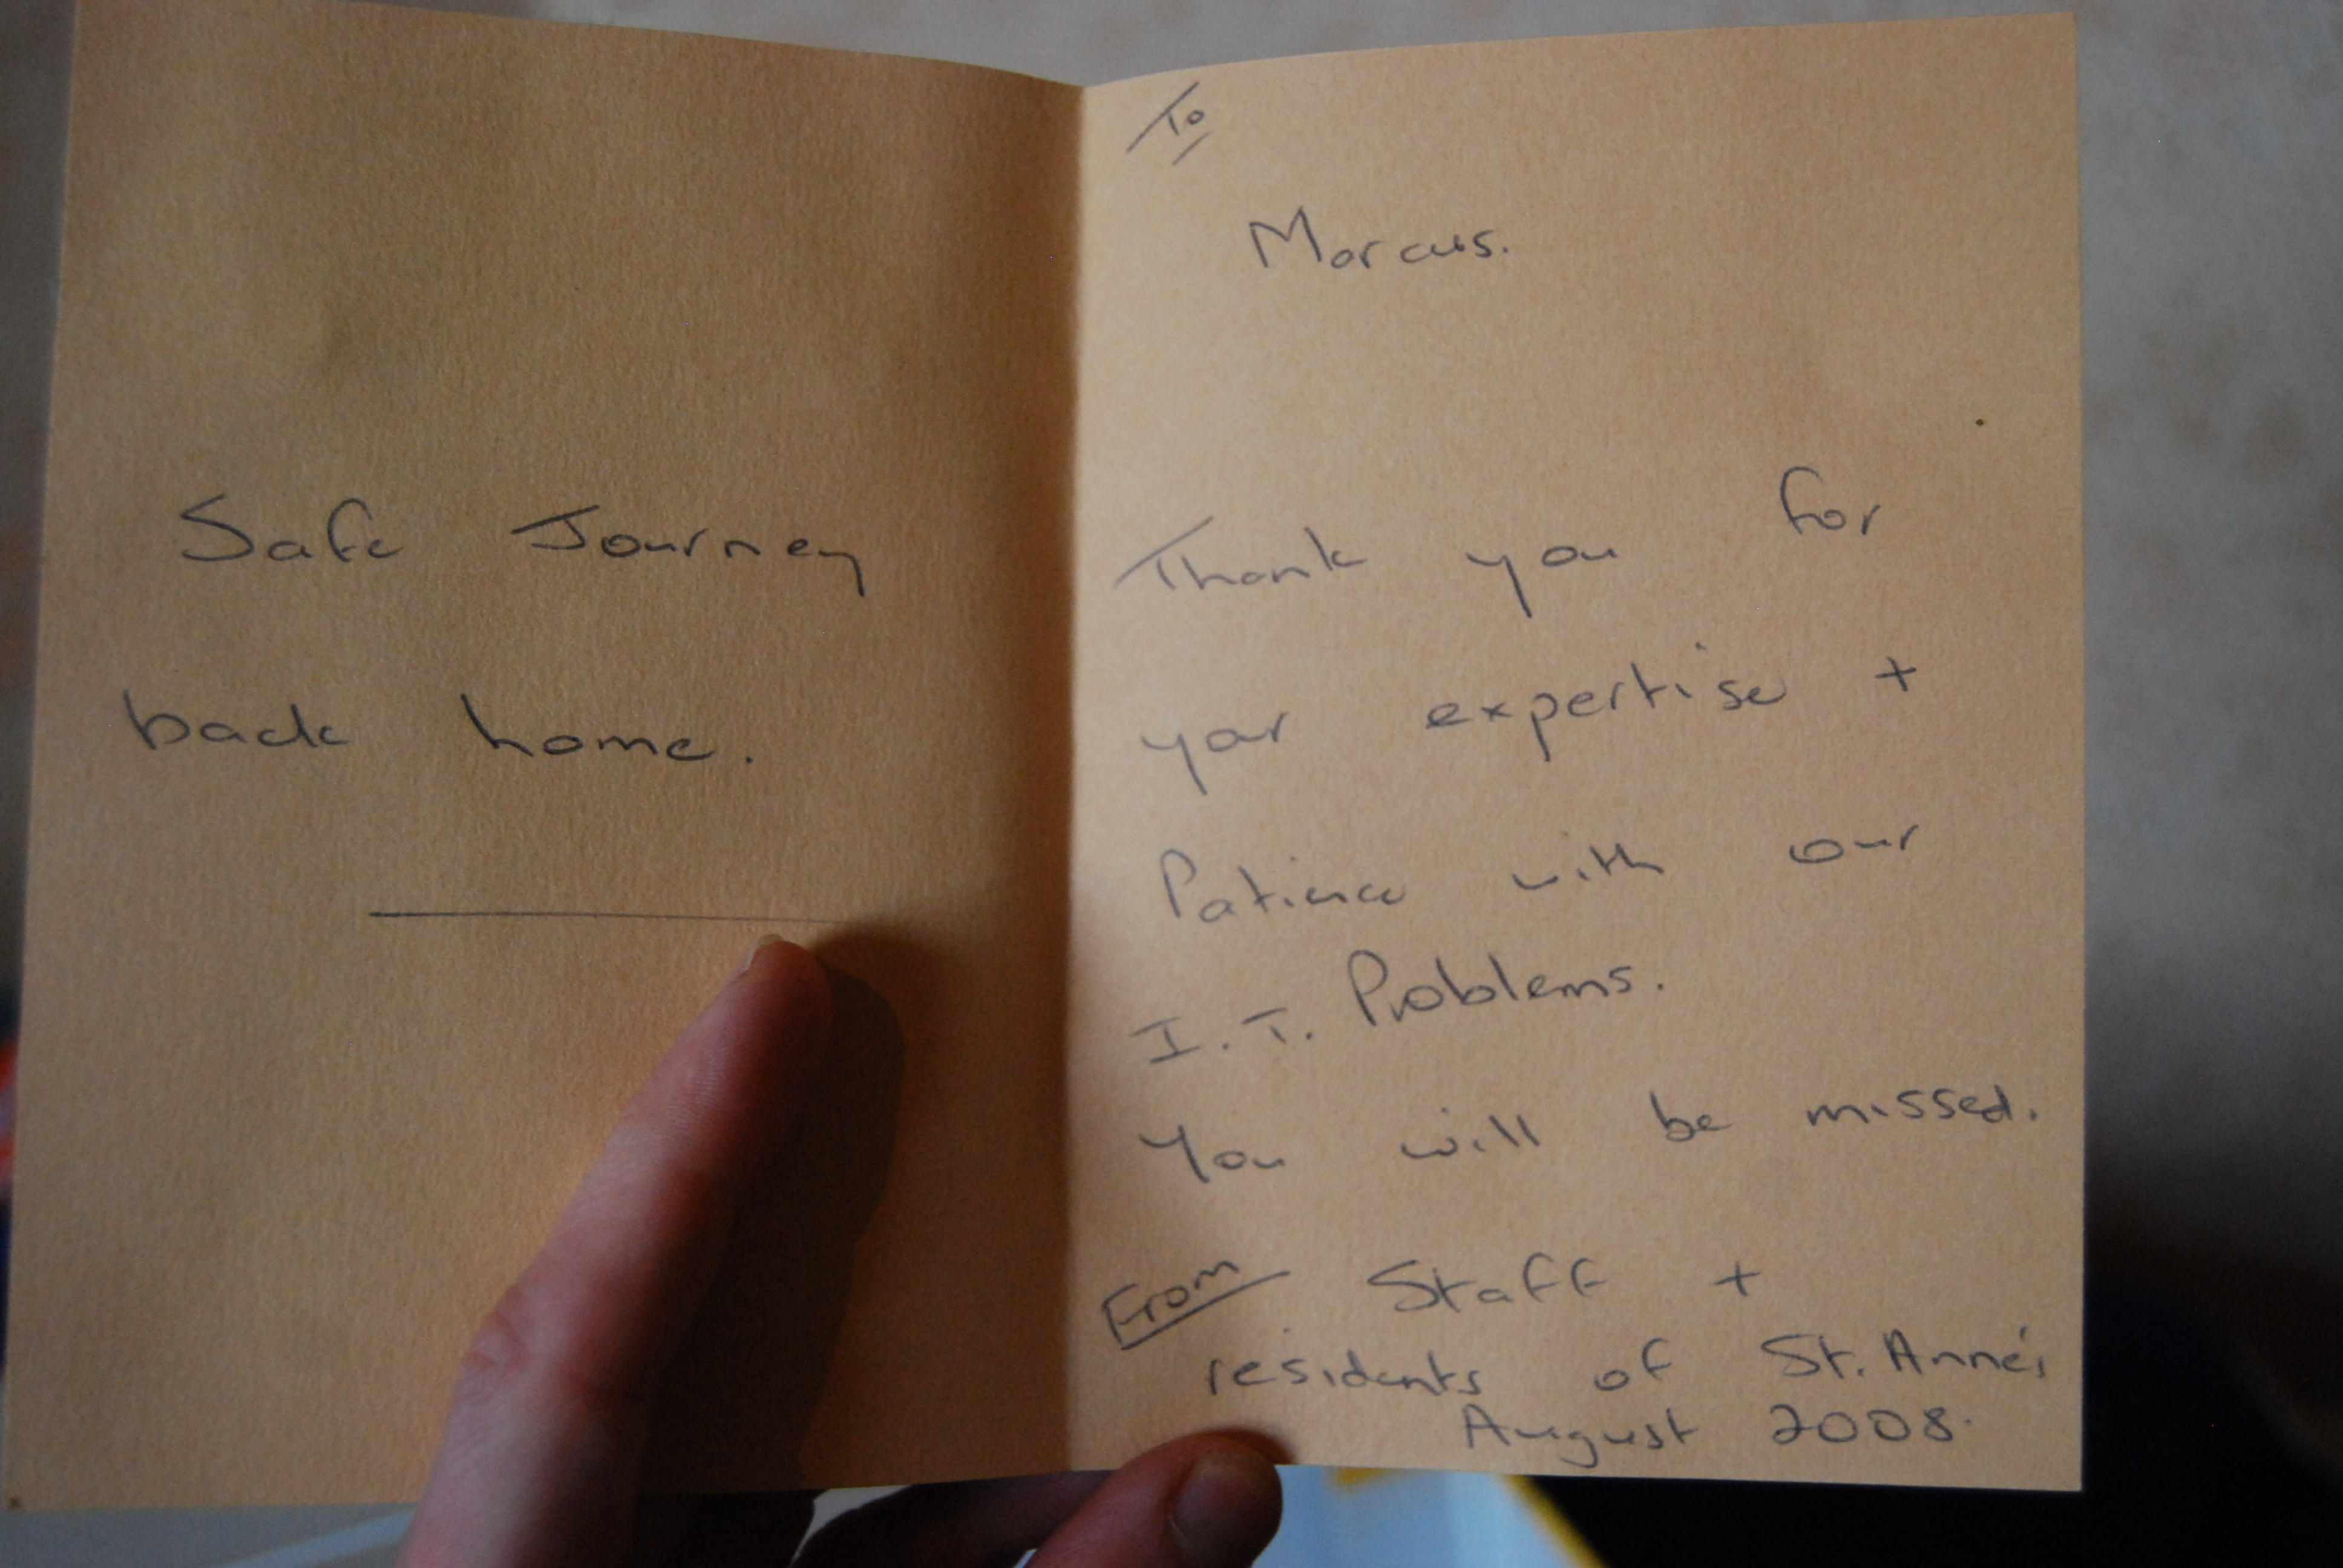 Safe Journey
back home.
To
Marcus.
Thank you for
your expertise +
Patience with our
I.T. Problems.
You will be missed.
From Staff +
residents of St. Anne's
August 2008.